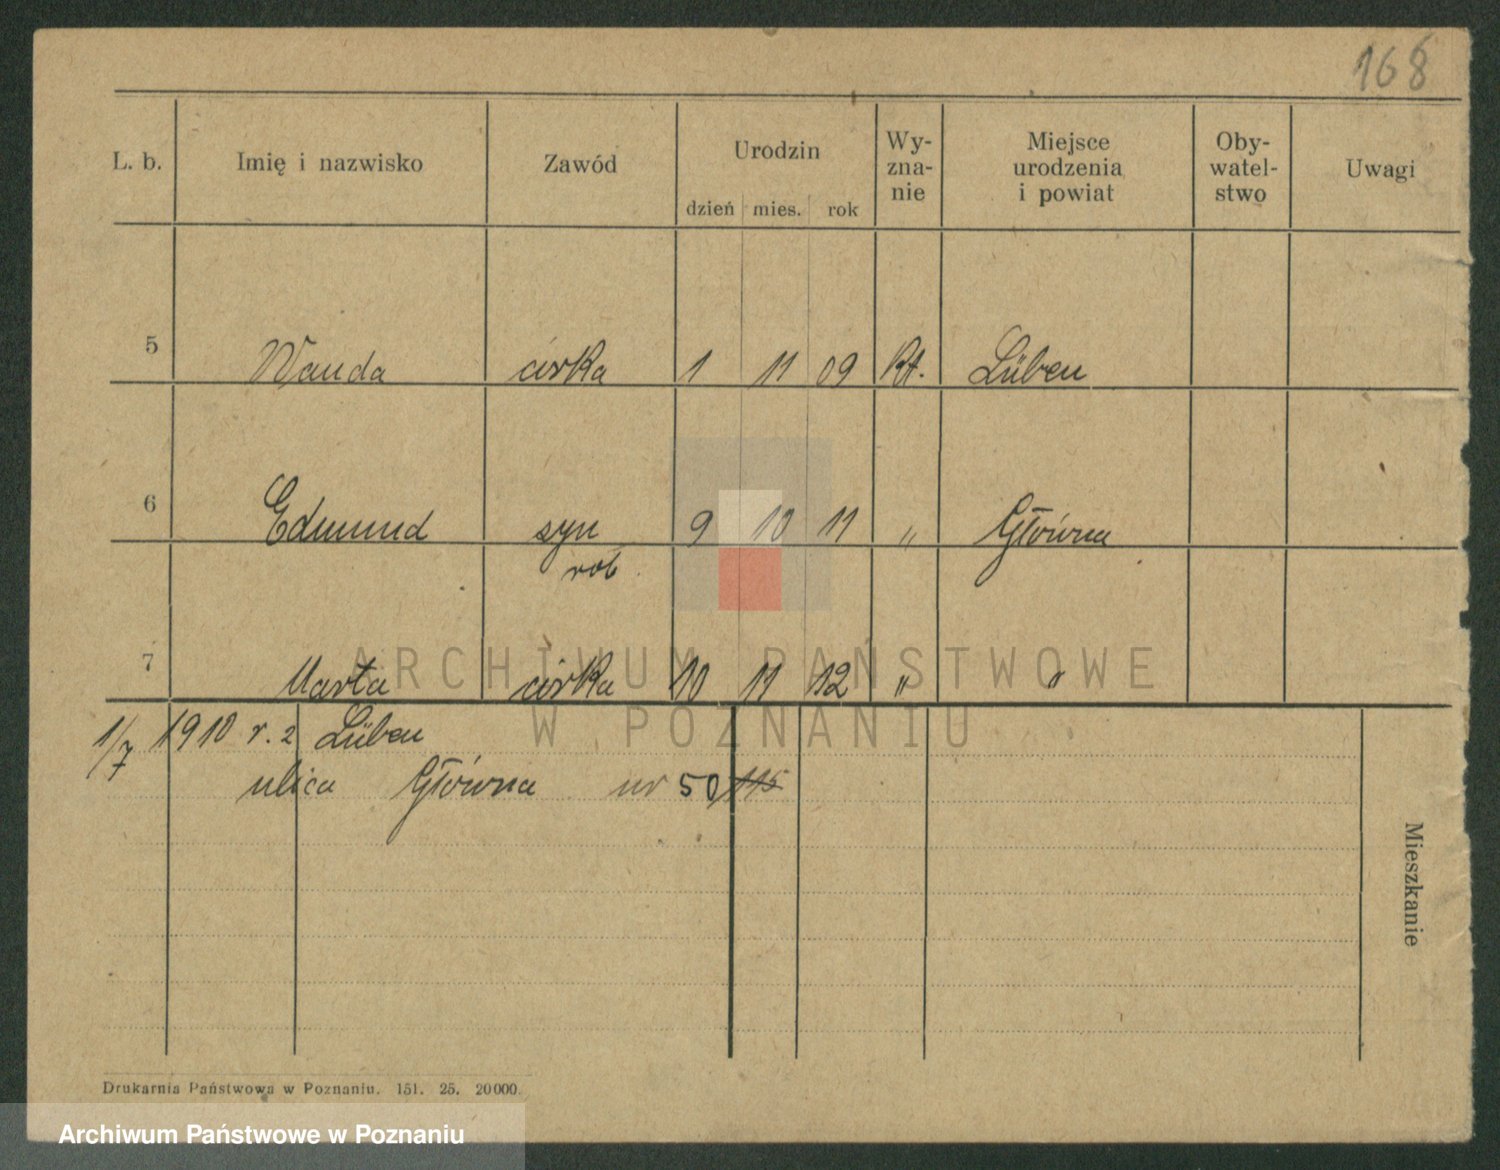 168
L. b. Imię i nazwisko Zawód Urodzin Wy-zna-nie Miejsce urodzenia i powiat Oby-watel-stwo Uwagi
dzień mies. rok
5 Wanda córka 1 11 09 Rt. Lüben
6 Edmund syn 9 10 11 " Główna
rob.
7 Marta córka 10 11 12 " "
ARCHIWUM PAŃSTWOWE
W POZNANIU
1/7 1910 r. z Lüben
ulica Główna nr 50/115
Mieszkanie
Drukarnia Państwowa w Poznaniu. 151. 25. 20000.
Archiwum Państwowe w Poznaniu